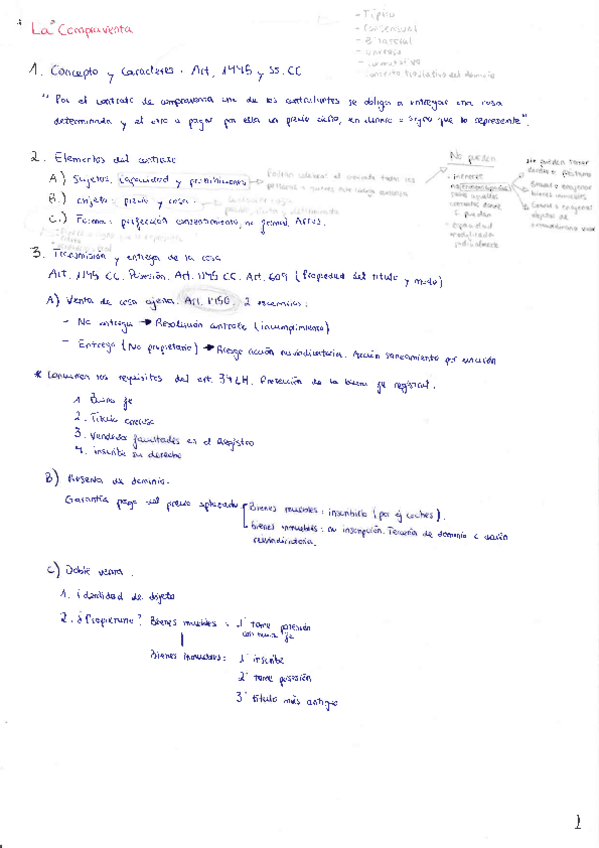 La Compraventa
- Típico
- Consensual
- Bilateral
- Oneroso
- Conmutativo
traslativo del dominio
1. Concepto y Caracteres. Art. 1445 y ss. CC
"Por el contrato de compraventa uno de los contratantes se obliga a entregar una cosa
determinada y el otro a pagar por ella un precio cierto, en dinero o signo que lo represente".
2. Elementos del contrato
A) Sujetos. capacidad y prohibiciones
B) objeto: precio y cosa
C) Forma: perfección consentimiento, no formal.
No pueden
- menores
- no emancipados
para aquellos
contratos donde
sí puedan
- capacidad
modificada
judicialmente
no pueden tomar
dinero a préstamo
bienes inmuebles
objetos de
extraordinario valor
3. Transmisión y entrega de la cosa
Art. 1445 CC. Posesión. Art. CC. Art. 609 (Propiedad del título y modo)
A) Venta de cosa ajena. Art. 1450. 2 escenarios:
- No entrega → Resolución contrato (incumplimiento)
- Entrega (No propietario) → Riesgo acción reivindicatoria. Acción saneamiento por evicción
* los requisitos del art. 34 LH. Protección de la buena fe registral.
1. Buena fe
2. Título oneroso
3. Vendedor facultades es el Registro
4. inscribe su derecho
B) Reserva de dominio.
Garantía pago del precio aplazado
Bienes muebles: inscribirlo (por ej coches).
Bienes inmuebles: no inscripción. Tercería de dominio o acción
reivindicatoria.
C) Doble venta.
1. identidad de objeto
2. ¿Propietario? Bienes muebles: 1º tome posesión
con buena fe
Bienes Inmuebles: 1º inscribe
2º tome posesión
3º título más antiguo
1